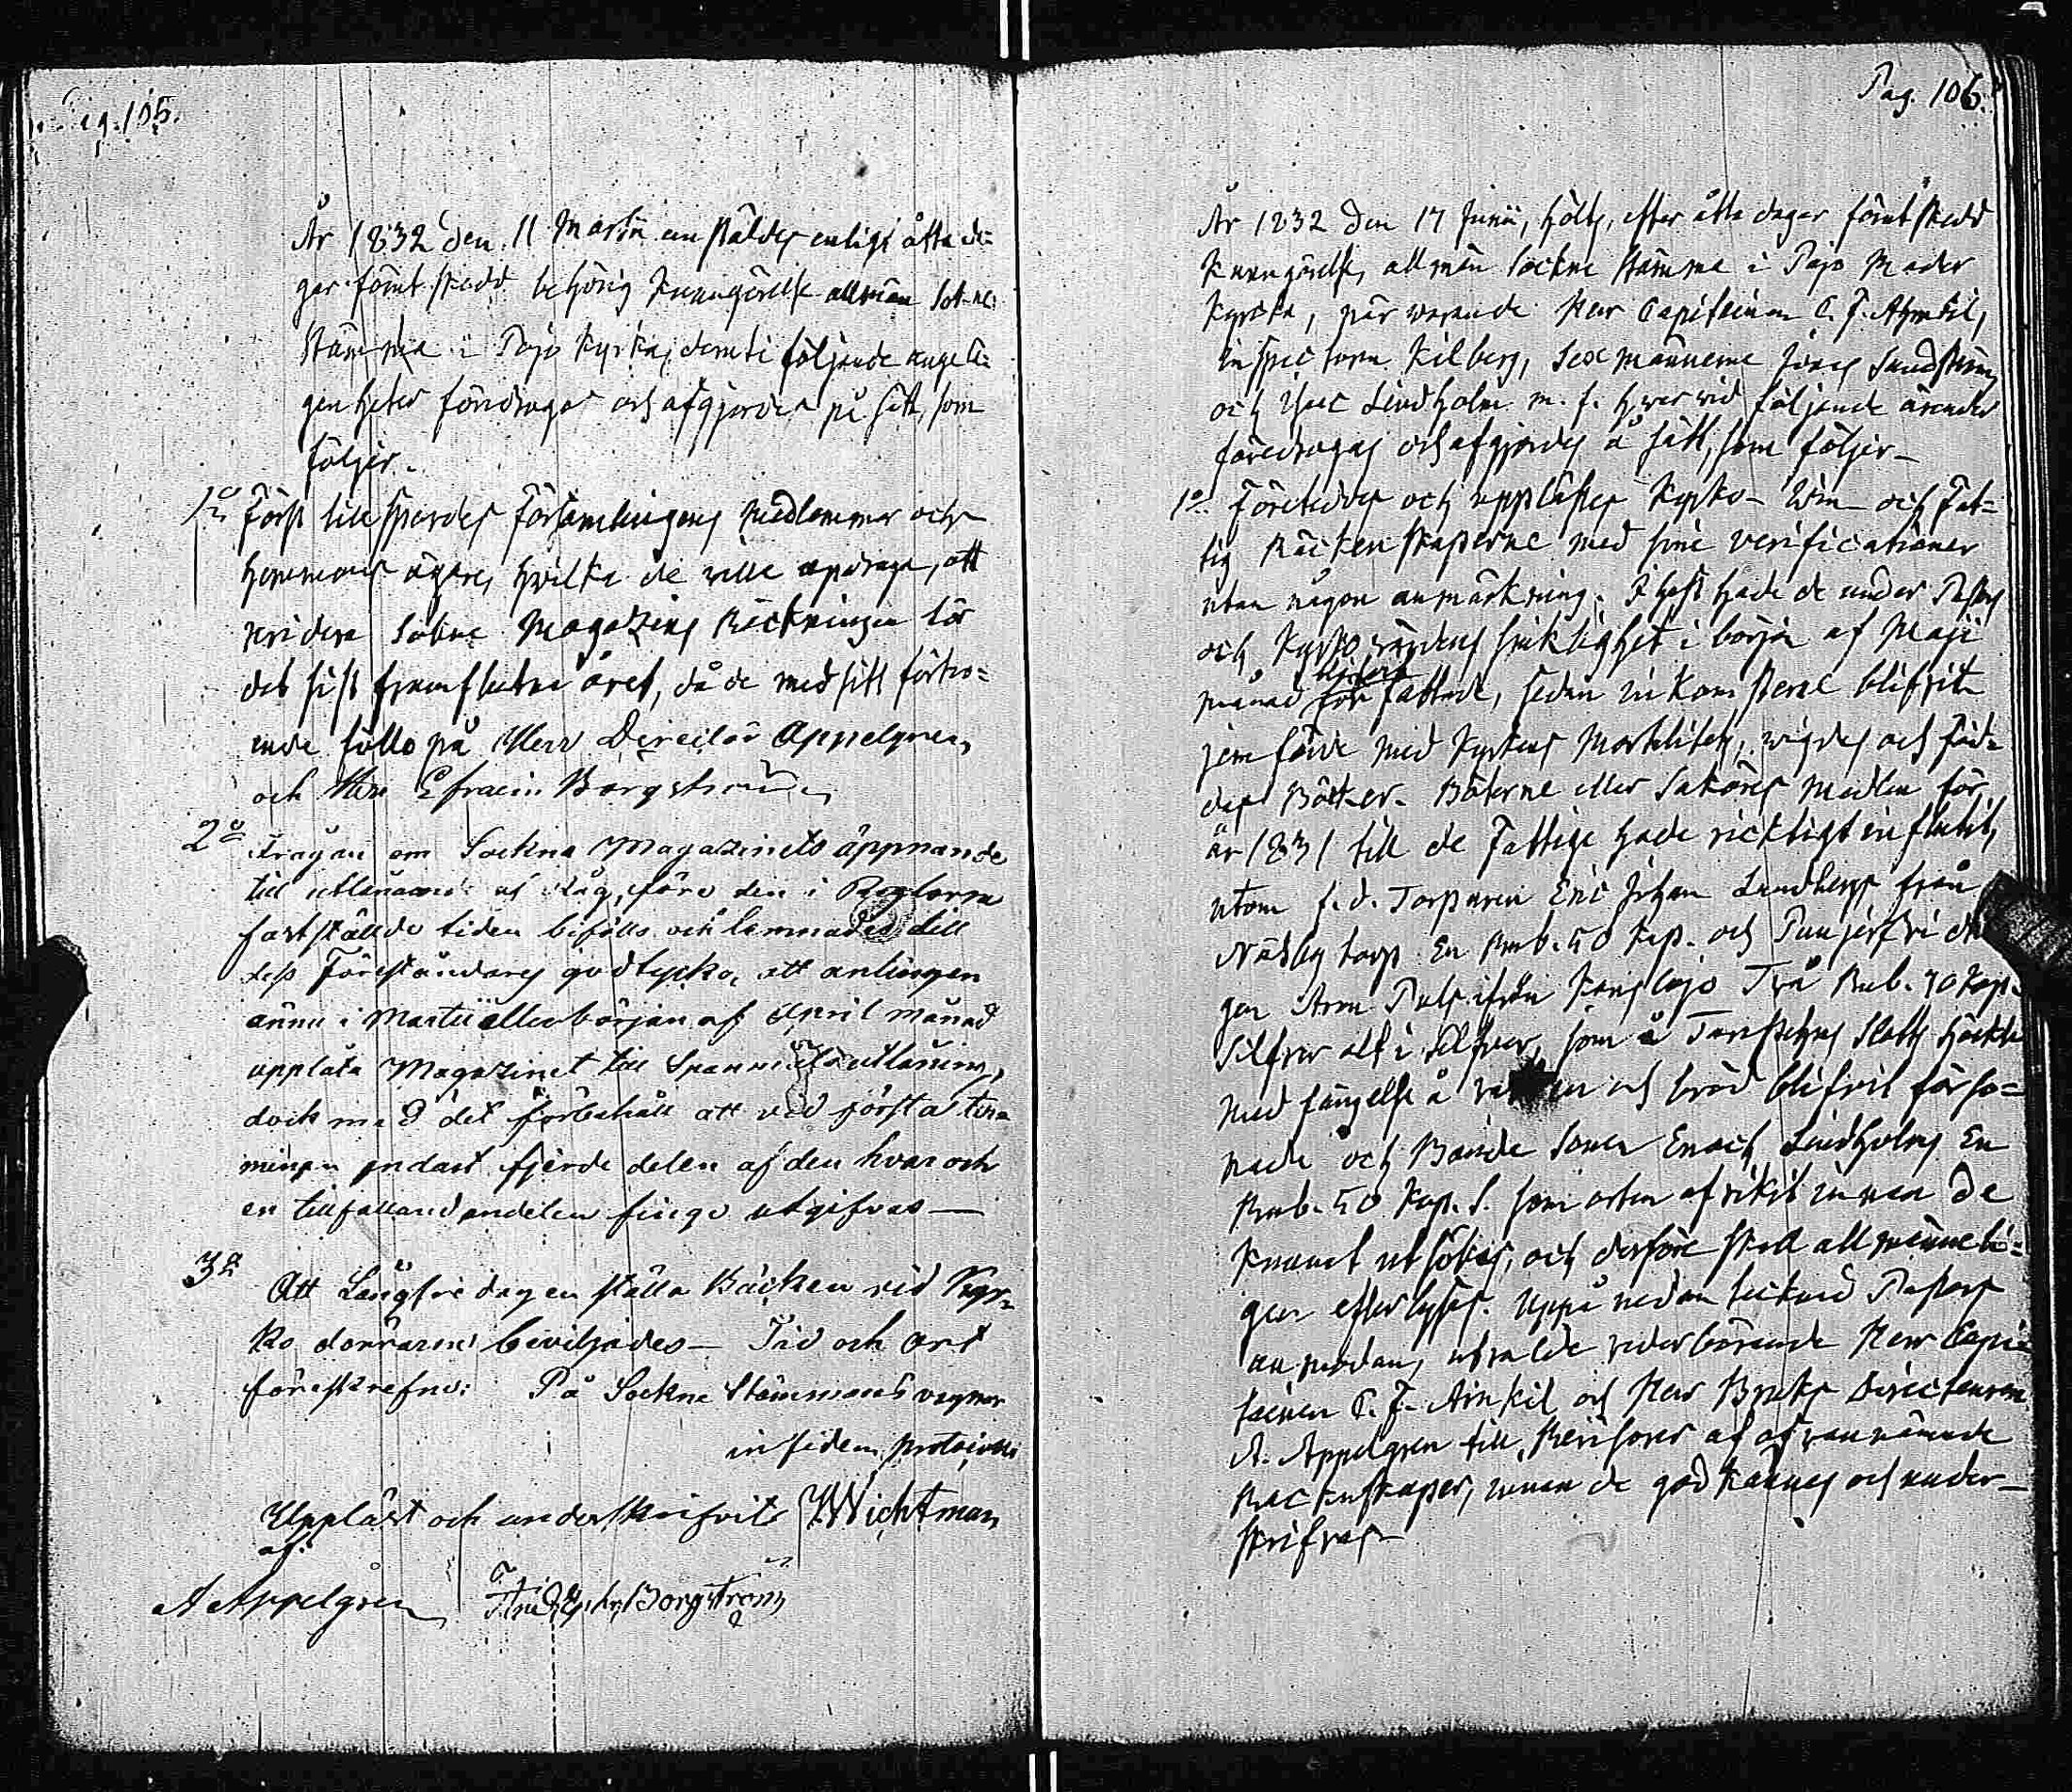 Pag. 105.
År 1832 den 11 Martii anstäldes enligt åtta da-
gar förut skedd behörig kungörelse allmän Sokne
Stämma i Pojo Kyrka, deruti följande angelä-
genheter föredrogos och afgjordes på sätt, som
följer.
1o Först tillspordes Församlingens medlemmar och
hemmans ägare, hvilka de ville updraga, att
revidera Sokne Magazins Räckningen för
det sist framflutna året, då de med sitt förtro-
ende föllo på Herr Director Appelgren,
och Herr Efraim Borgström
2o Frågan om Sockne Magazinets öppnande
till utlånande af såg, före den i Reglorna
fastställde tiden biföllo och lemnades till
dess Föreståndares godtycke, att antingen
ännu i Martii eller början af April månad
upplåta Magazinet till Spannmåls utlåning,
dock med det förbehåll att vid första ter-
minen endast fjerde delen af den hvar och
en tillfallande andelen finge utgifvas —
3o Att Långfredagen ställa Bäcken vid Kyr-
ko dörrarne beviljades — Tid och ort
föreskrefne: På Sockne Stämmans vegnar
in fidem protocolli
Uppläst och underskrifvit Wichtman
af:
A Appelgren Fred. Ephr. Borgström
Pag. 106.
År 1832 den 17 Junii, hölts, efter åtta dagar förut skedd
kungörelse, allmän Sockne Stämma i Pojo Moder
Kyrcka, när warande Herr Capitainen C. F. Armkil,
Inspectorn Kilberg, Sexmännerne Jonas Sundström
och Isac Lindholm m. f. hvarvid följande ärender
föredrogos och afgjordes å sätt, som följer —
1o. Företeddes och upplästes Kyrko- Win- och Fat-
tig Räckenskaperne med sine verificationer
utan någon anmärkning. I hast hade de under Pastors
och Kyrkovärdens sjuklighet i början af Maji
månad blifvit
författade, sedan inkomsterne blifvit
jemförde med Kyrkans Mortalitets, vigdes och Föd-
des Böcker. Böterne eller Saköres medlen för
år 1831 till de Fattige hade ricktigt influtit,
utom f.d. Torparen Eric Johan Lundbergs från
Näsby torp En Rub. 50 Kop. och Drä
gen Aron Pals ifrån Karislojo Två Rub. 70 Kop.
Silfver alt i silfver, som å Tavastehus Slotts häckte
med fängelse å vatten och bröd blifvit förso-
nade och Bonde Sonen Enoch Lindholms En
Rub. 50 Kop. S. som orten afvikit innan de
kunnat utsökas, och derföre skall allmänneli-
gen efterlyses. Uppå nedan tecknad Pastors
anmodan, utvalde vederbörande Herr Capi-
tainen C. F. Armkil och Herr Bruks Directeuren
A. Appelgren till Revisorer af ofvannämnde
Räckenskaper, innan de godkännes och under-
skrifvas —